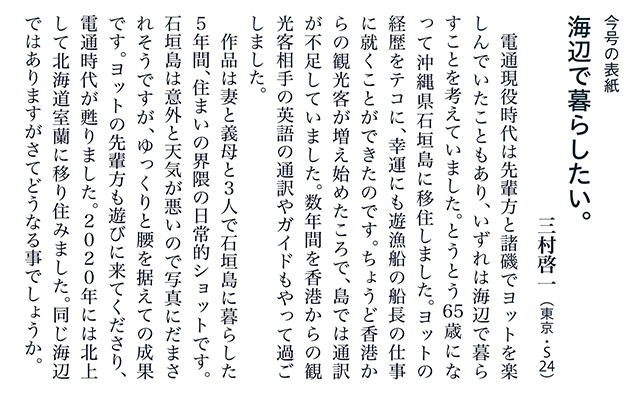 今号の表紙
海辺で暮らしたい。
三村啓一（東京・S24）
電通現役時代は先輩方と諸磯でヨットを楽
しんでいたこともあり、いずれは海辺で暮ら
すことを考えていました。とうとう65歳にな
って沖縄県石垣島に移住しました。ヨットの
経歴をテコに、幸運にも遊漁船の船長の仕事
に就くことができたのです。ちょうど香港か
らの観光客が増え始めたころで、島では通訳
が不足していました。数年間を香港からの観
光客相手の英語の通訳やガイドもやって過ご
しました。
作品は妻と義母と3人で石垣島に暮らした
5年間、住まいの界隈の日常的ショットです。
石垣島は意外と天気が悪いので写真にだまさ
れそうですが、ゆっくりと腰を据えての成果
です。ヨットの先輩方も遊びに来てくださり、
電通時代が甦りました。2020年には北上
して北海道室蘭に移り住みました。同じ海辺
ではありますがさてどうなる事でしょうか。